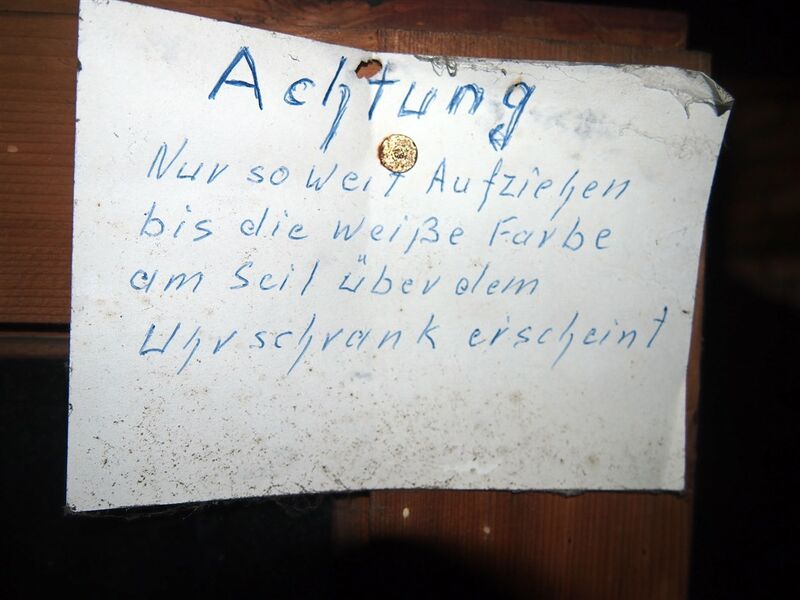 Achtung
Nur so weit Aufziehen
bis die weiße Farbe
am Seil über dem
Uhrschrank erscheint